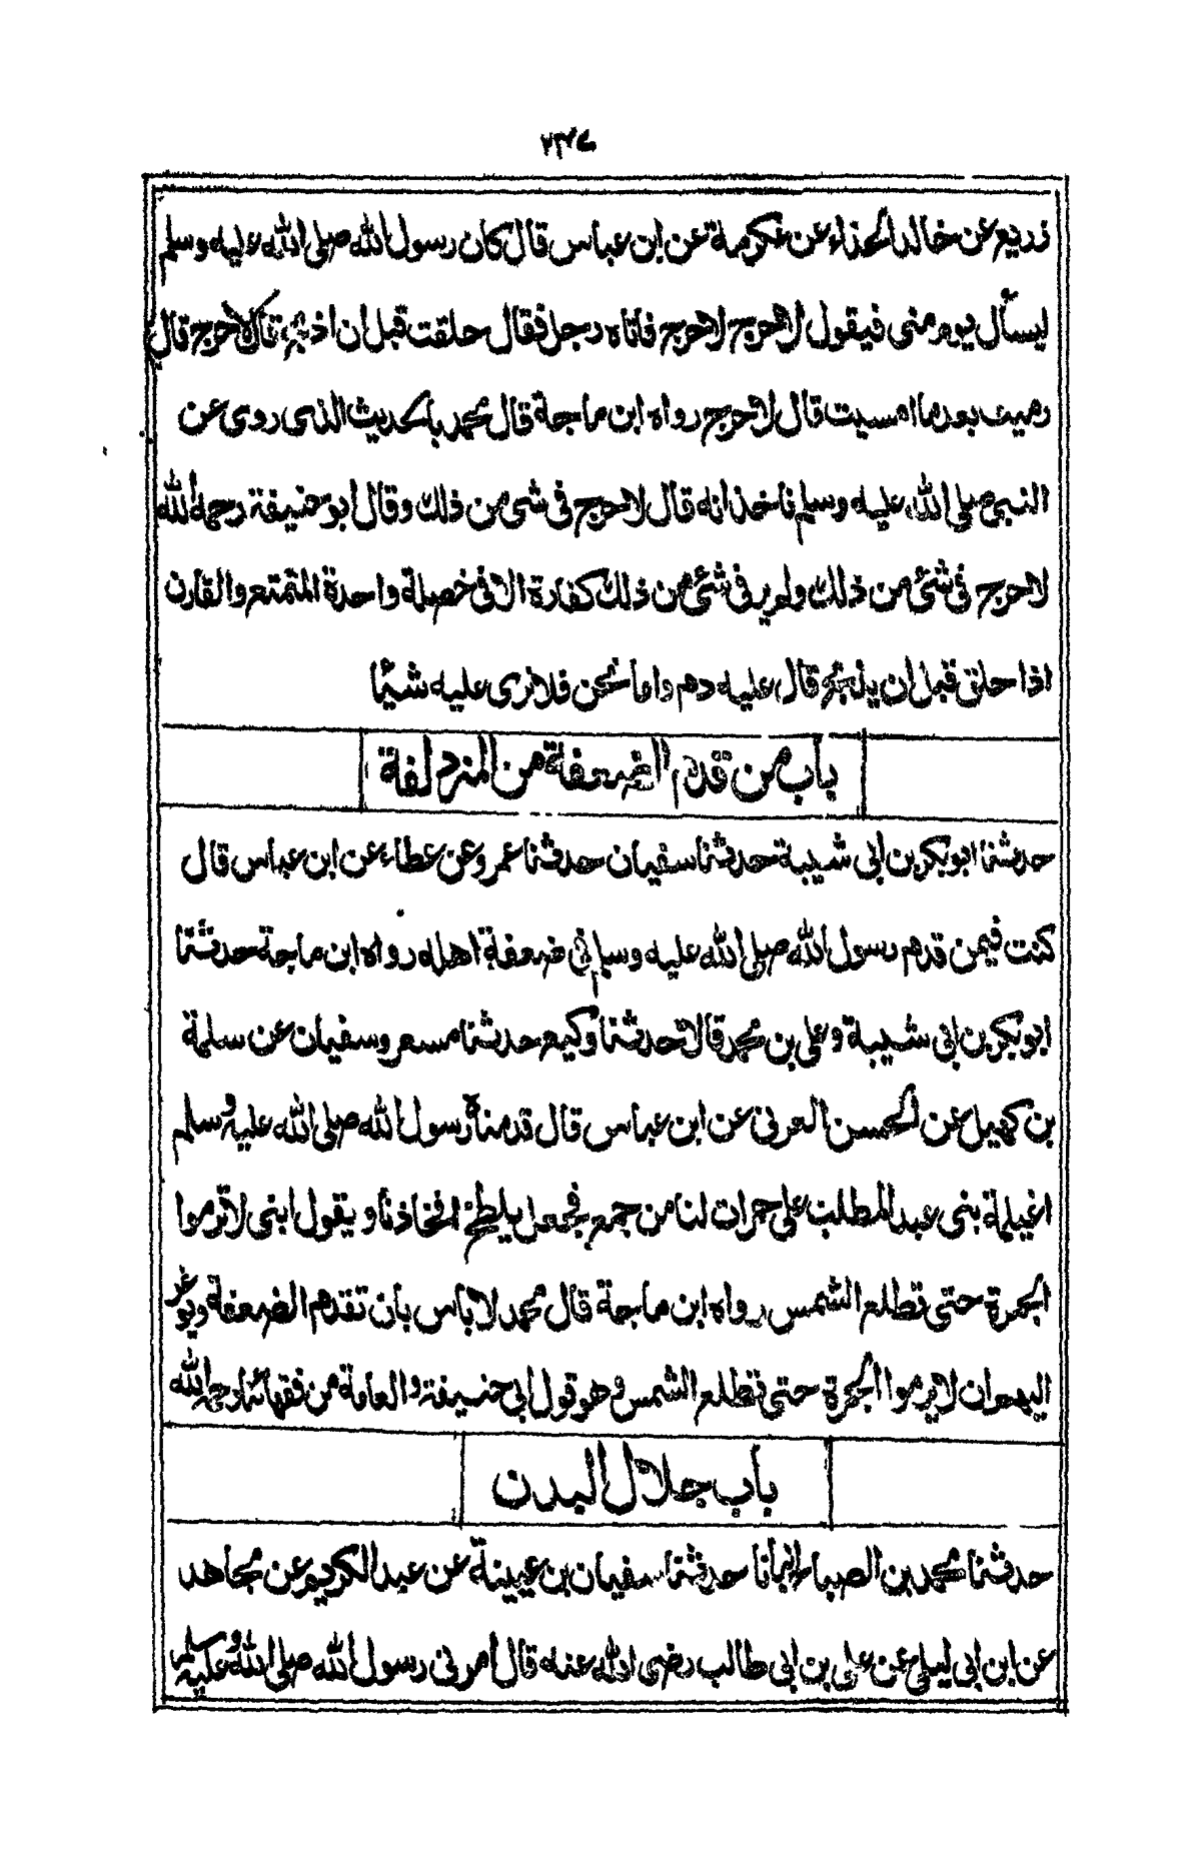 زريع عن خالد الحذاء عن عكرمة عن ابن عباس قال كان رسول الله صلى الله عليه وسلم
ليسأل يوم منى فيقول لاحرج لاحرج فاتاه رجل فقال حلقت قبل ان اذبح قال لاحرج قال
رميت بعد ما امسيت قال لاحرج رواه ابن ماجة قال محمد بالحديث الذى روى عن
النبى صلى الله عليه وسلم ناخذ انه قال لاحرج فى شئ من ذلك وقال ابو حنيفة رحمه الله
لاحرج فى شئ من ذلك ولم ير فى شئ من ذلك كفارة الا فى خصلة واحدة المتمتع والقارن
اذا حلق قبل ان يذبح قال عليه دم واما نحن فلا نرى عليه شيئا
باب من قدم الضعفة من المزدلفة
حدثنا ابو بكر بن ابى شيبة حدثنا سفيان حدثنا عمرو عن عطاء عن ابن عباس قال
كنت فيمن قدم رسول الله صلى الله عليه وسلم فى ضعفة اهله رواه ابن ماجة حدثنا
ابو بكر بن ابى شيبة وعلى بن محمد قالا حدثنا وكيع حدثنا مسعر وسفيان عن سلمة
بن كهيل عن الحسن العرنى عن ابن عباس قال قدمنا رسول الله صلى الله عليه وسلم
اغيلمة بنى عبد المطلب على حمرات لنا من جمع فجعل يلطخ افخاذنا ويقول ابنى لا ترموا
الجمرة حتى تطلع الشمس رواه ابن ماجة قال محمد لا باس بان تقدم الضعفة ويوغر
اليهم ان لا يرموا الجمرة حتى تطلع الشمس وهو قول ابى حنيفة والعامة من فقهائنا رحمه الله
باب جلال البدن
حدثنا محمد بن الصباح انبأنا حدثنا سفيان بن عيينة عن عبد الكريم عن مجاهد
عن ابن ابى ليلى عن على بن ابى طالب رضى الله عنه قال امرنى رسول الله صلى الله عليه وسلم